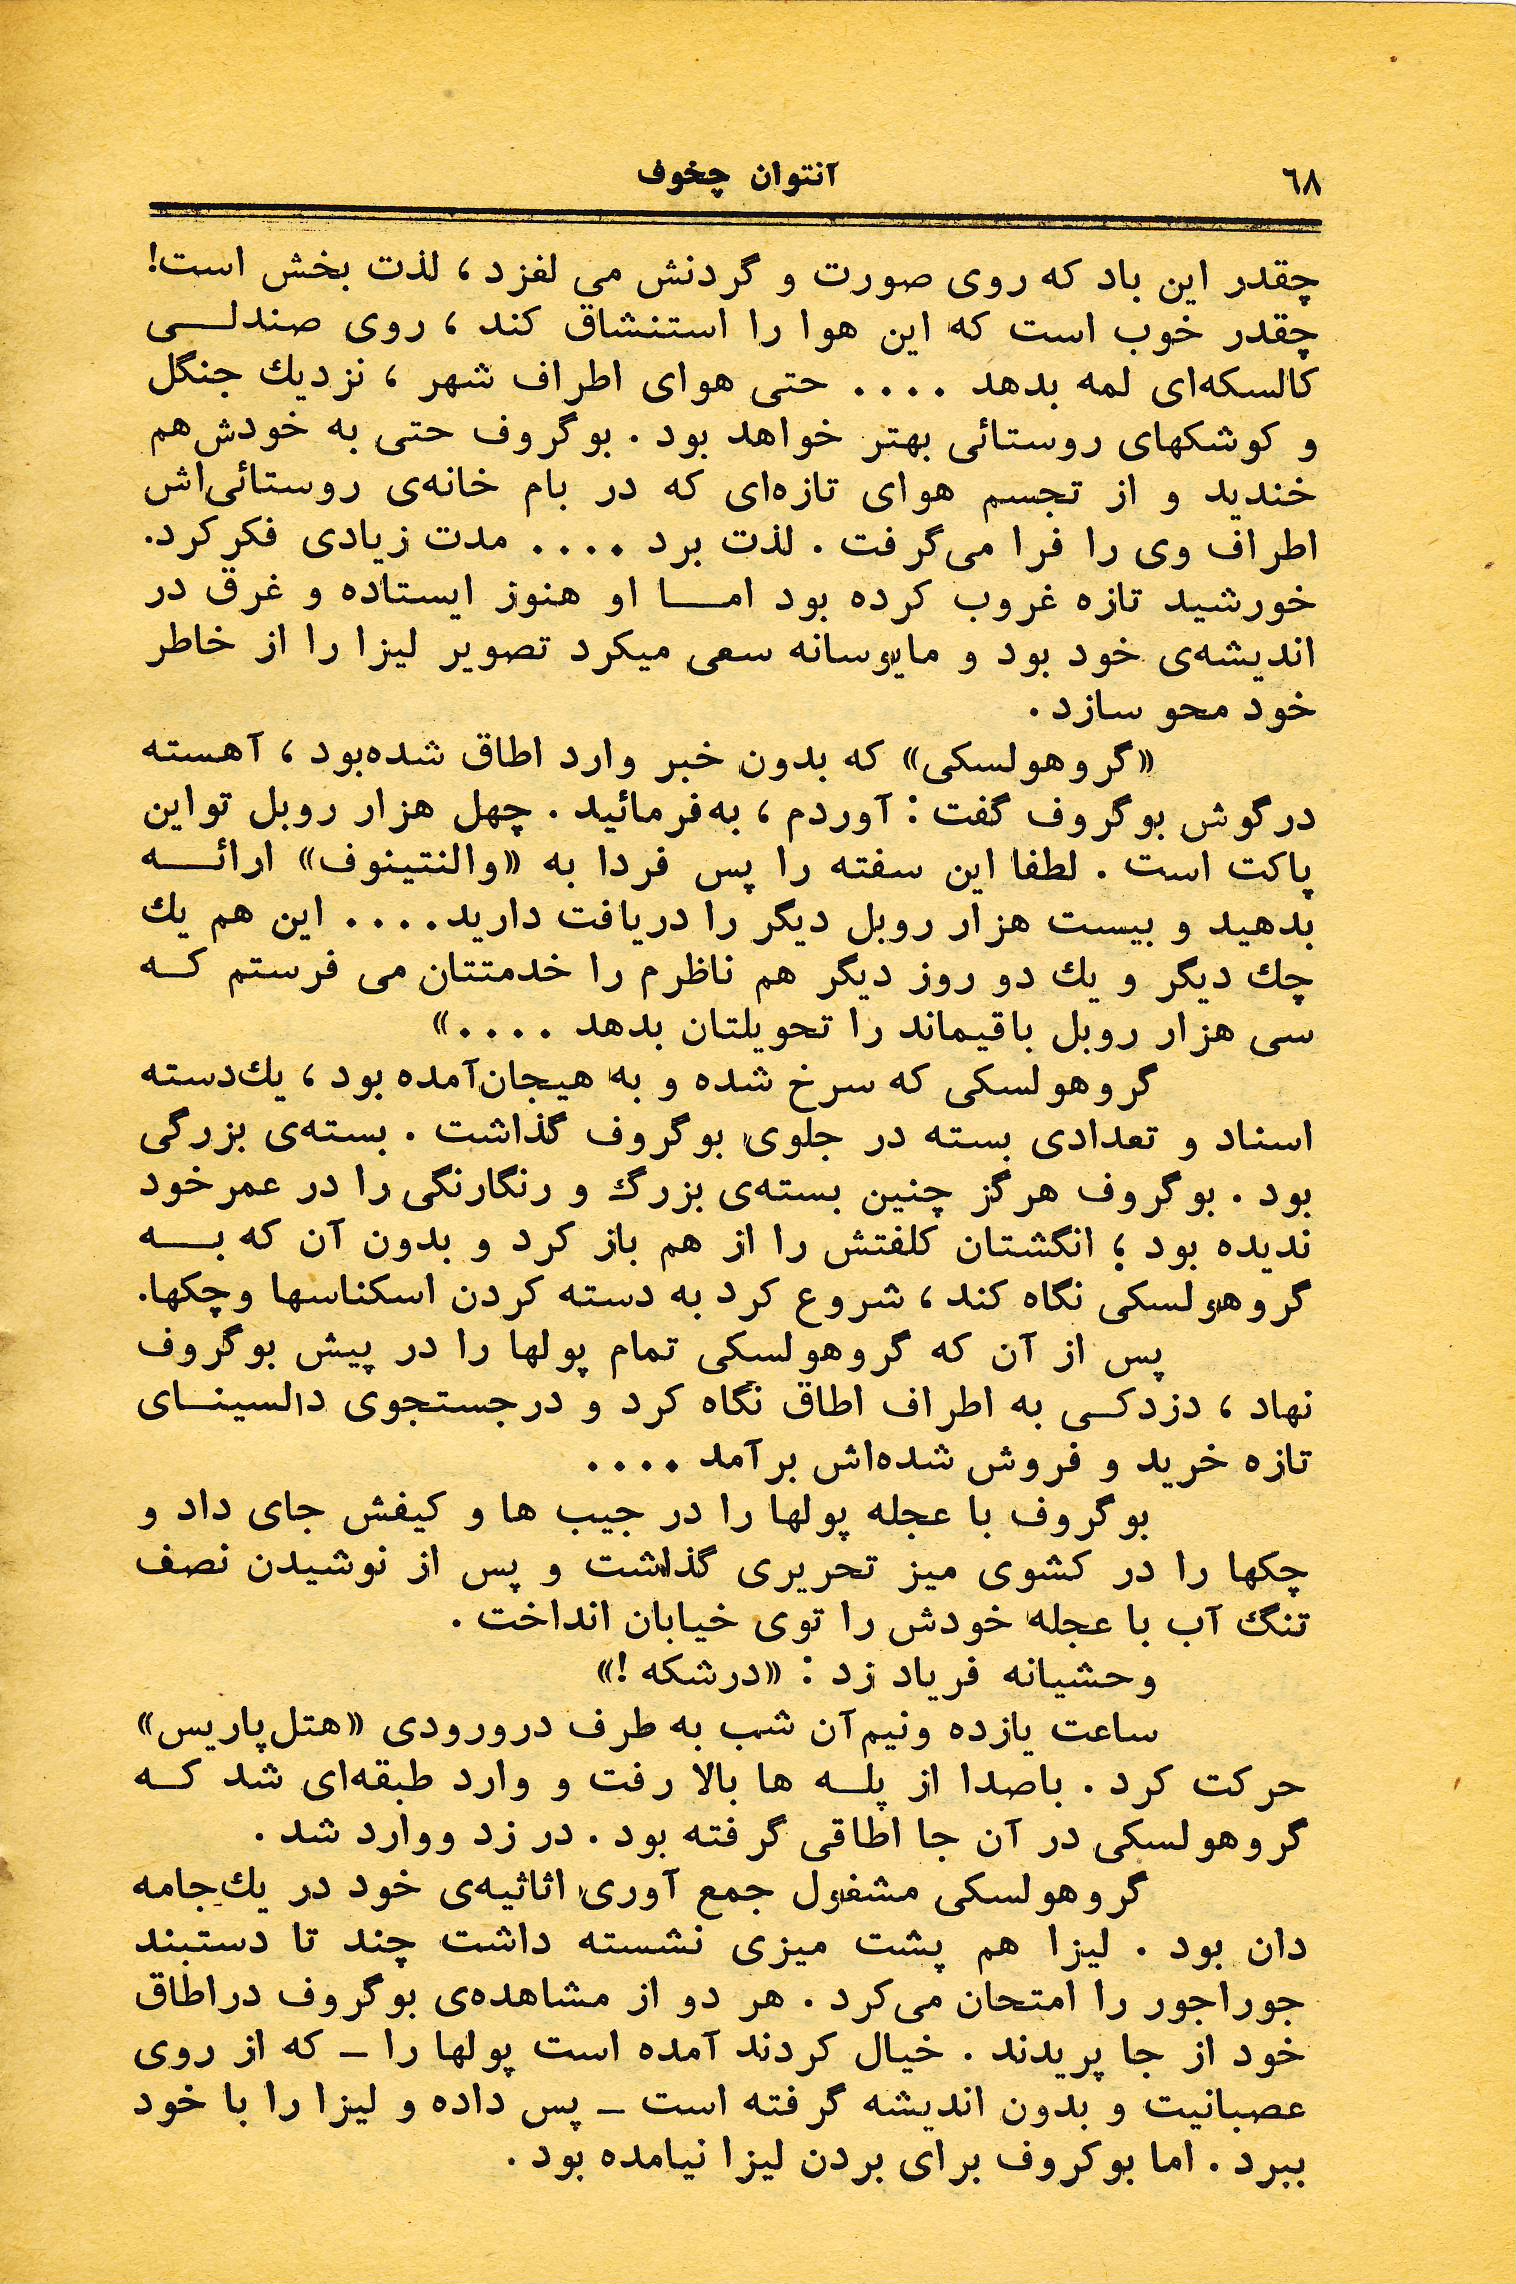 ۶۸
آنتوان چخوف
چقدر این باد که روی صورت و گردنش می لغزد ، لذت بخش است!
چقدر خوب است که این هوا را استنشاق کند ، روی صندلـــی
کالسکه‌ای لمه بدهد .... حتی هوای اطراف شهر ، نزدیك جنگل
و کوشکهای روستائی بهتر خواهد بود . بوگروف حتی به خودش هم
خندید و از تجسم هوای تازه‌ای که در بام خانه‌ی روستائی‌اش
اطراف وی را فرا می‌گرفت . لذت برد .... مدت زیادی فکر کرد.
خورشید تازه غروب کرده بود امـــا او هنوز ایستاده و غرق در
اندیشه‌ی خود بود و مایوسانه سعی میکرد تصویر لیزا را از خاطر
خود محو سازد .
«گروهولسکی» که بدون خبر وارد اطاق شده‌بود ، آهسته
درگوش بوگروف گفت : آوردم ، به‌فرمائید . چهل هزار روبل تو این
پاکت است . لطفا این سفته را پس فردا به «والنتینوف» ارائـــه
بدهید و بیست هزار روبل دیگر را دریافت دارید.... این هم یك
چك دیگر و یك دو روز دیگر هم ناظرم را خدمتتان می فرستم کـه
سی هزار روبل باقیماند را تحویلتان بدهد ....»
گروهولسکی که سرخ شده و به هیجان‌آمده بود ، یك‌دسته
اسناد و تعدادی بسته در جلوی بوگروف گذاشت . بسته‌ی بزرگی
بود . بوگروف هرگز چنین بسته‌ی بزرگ و رنگارنگی را در عمر خود
ندیده بود ؛ انگشتان کلفتش را از هم باز کرد و بدون آن که بـــه
گروهولسکی نگاه کند ، شروع کرد به دسته کردن اسکناسها و چکها.
پس از آن که گروهولسکی تمام پولها را در پیش بوگروف
نهاد ، دزدکـی به اطراف اطاق نگاه کرد و درجستجوی دالسینـای
تازه خرید و فروش شده‌اش برآمد ....
بوگروف با عجله پولها را در جیب ها و کیفش جای داد و
چکها را در کشوی میز تحریری گذاشت و پس از نوشیدن نصف
تنگ آب با عجله خودش را توی خیابان انداخت .
وحشیانه فریاد زد : «درشکه !»
ساعت یازده ونیم آن شب به طرف درورودی «هتل‌پاریس»
حرکت کرد . باصدا از پلـه ها بالا رفت و وارد طبقه‌ای شد کـه
گروهولسکی در آن جا اطاقی گرفته بود . در زد ووارد شد .
گروهولسکی مشغول جمع آوری اثاثیه‌ی خود در یك‌جامه
دان بود . لیزا هم پشت میزی نشسته داشت چند تا دستبند
جوراجور را امتحان می‌کرد . هر دو از مشاهده‌ی بوگروف دراطاق
خود از جا پریدند . خیال کردند آمده است پولها را ـ که از روی
عصبانیت و بدون اندیشه گرفته است ـ پس داده و لیزا را با خود
ببرد . اما بوکروف برای بردن لیزا نیامده بود .